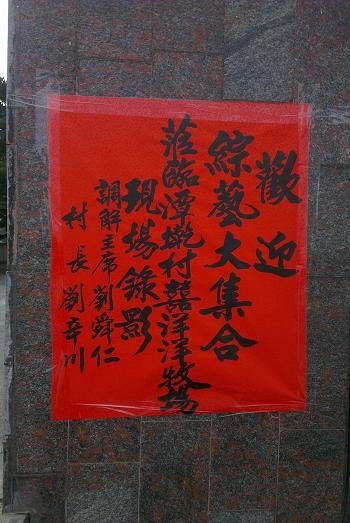 歡迎
綜藝大集合
蒞臨潭墘村囍洋洋牧場
現場錄影
調解主席劉舜仁
村長劉辛川